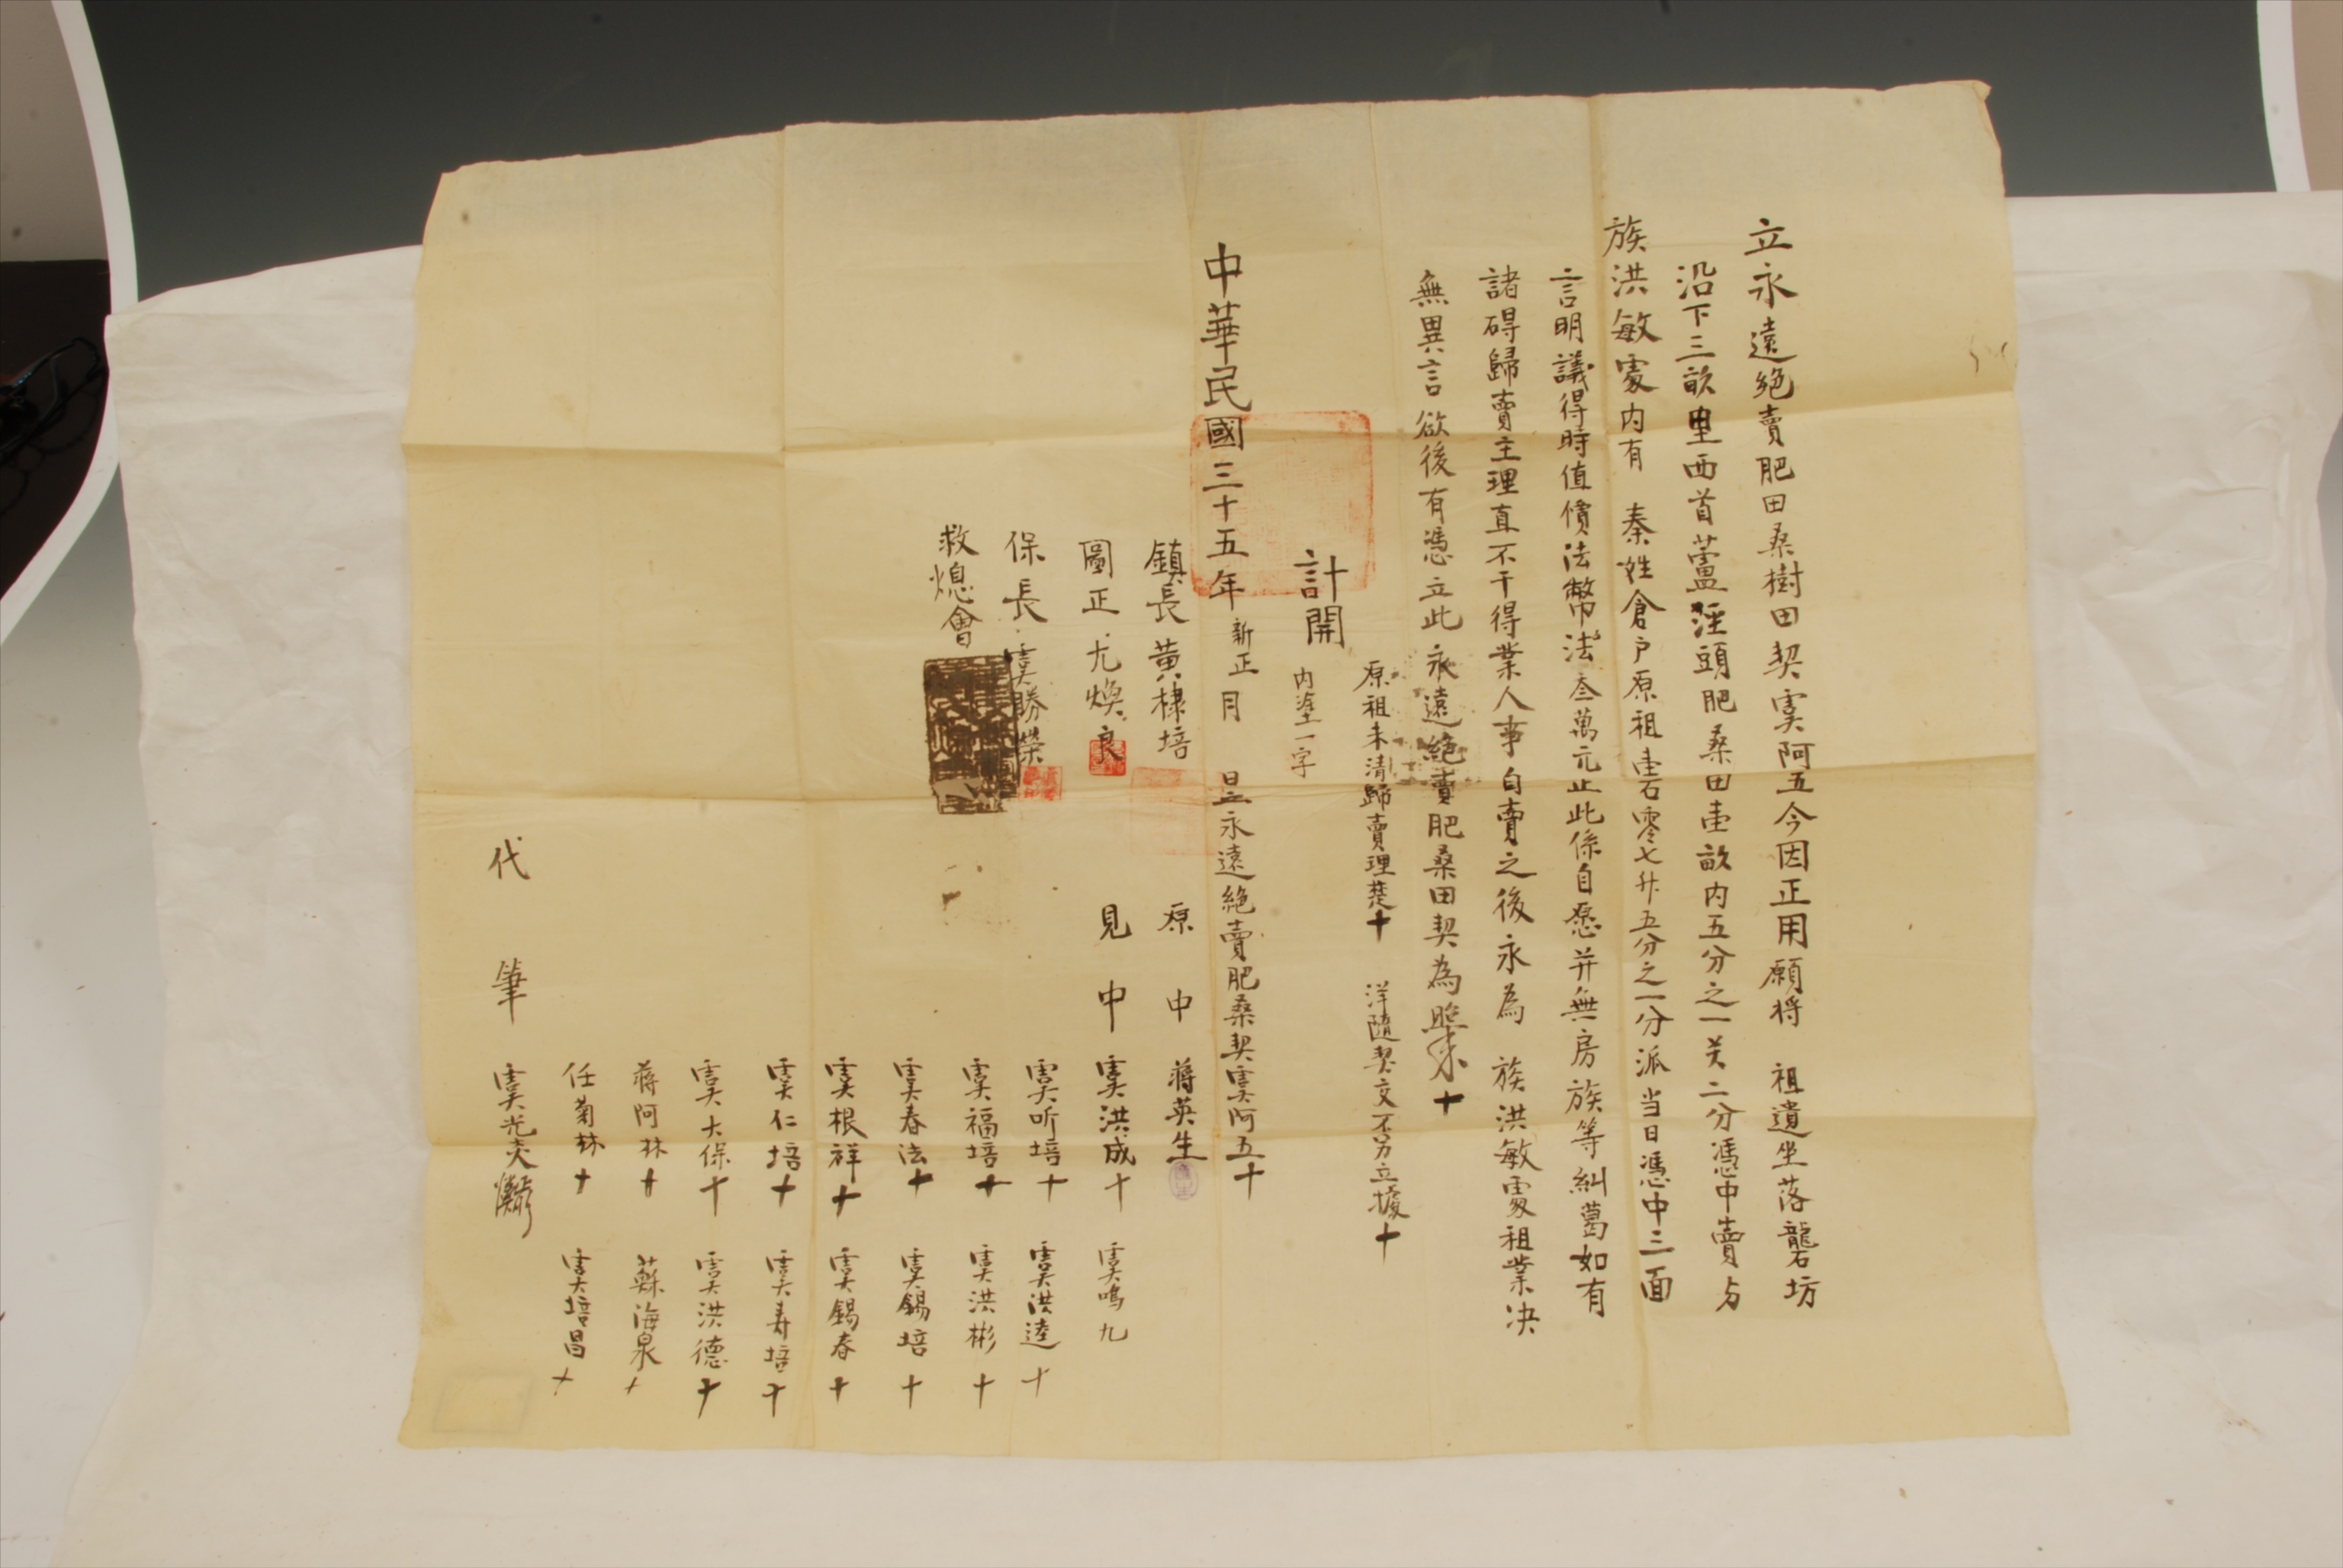 立永遠絕賣肥田桑樹田契虞阿五今因正用願将 祖遺坐落龍石坊
沿下三畝里西首蘆涇頭肥桑田壹畝内五分之一关二分憑中賣与
族洪敏處内有 秦姓倉户原祖壹石零七升五分之一分派当日憑中三面
言明議得時值價法幣法叁萬元止此係自愿并無房族等糾葛如有
諸碍歸賣主理直不干得業人事自賣之後永為 族洪敏處祖業决
無異言欲後有憑立此永遠絕賣肥桑田契為照 十
原祖未清歸賣理楚十 洋隨契交不另立據十
計開 内塗一字
中華民國三十五年新正月 日立永遠絕賣肥桑契虞阿五十
鎮長黄棣培 原中 蔣英生
圖正尤焕良 見中 虞洪成十 虞鳴九
保長虞勝榮 虞听培十 虞洪逵十
救熄會 虞福培十 虞洪彬十
虞春法十 虞錫培十
虞根祥十 虞錫春十
虞仁培十 虞寿培十
虞大保十 虞洪德十
蔣阿林十 蘇海泉十
任菊林十 虞培昌十
代筆 虞光炎